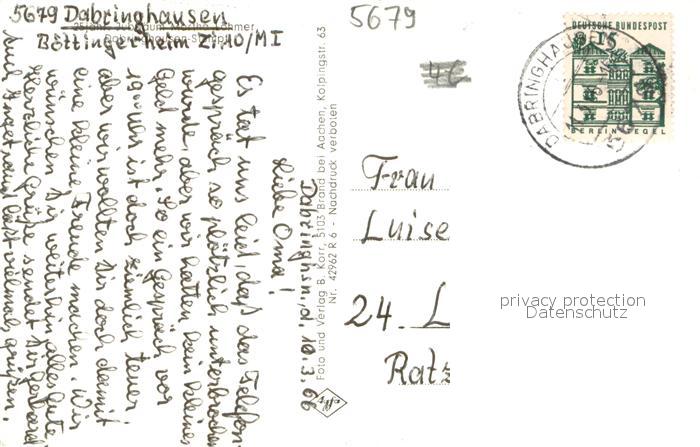 5679 Dabringhausen
Böttingerheim Zi. 10/MI
Dabringhsn, d. 10.3.66
Liebe Oma!
Es tat uns leid, daß das Telefon
gespräch so plötzlich unterbrochen
wurde, aber wir hatten kein kleines
Geld mehr. So ein Gespräch vor
19 Uhr ist doch ziemlich teuer
aber wir wollten Dir doch damit
eine kleine Freude machen. Wir
wünschen Dir weiterhin alles Gute
Herzliche Grüße sendet Dir Gerhard
Auch Ingetraud läßt vielmals grüßen.
Foto und Verlag B. Korr, 5103 Brand bei Aachen, Kolpingstr. 63
Nr. 42962 R 6 - Nachdruck verboten
Agfa
5679
DEUTSCHE BUNDESPOST
15
BERLIN TEGEL
DABRINGHAUSEN
Frau
Luise
24. L
Ratz
privacy protection
Datenschutz